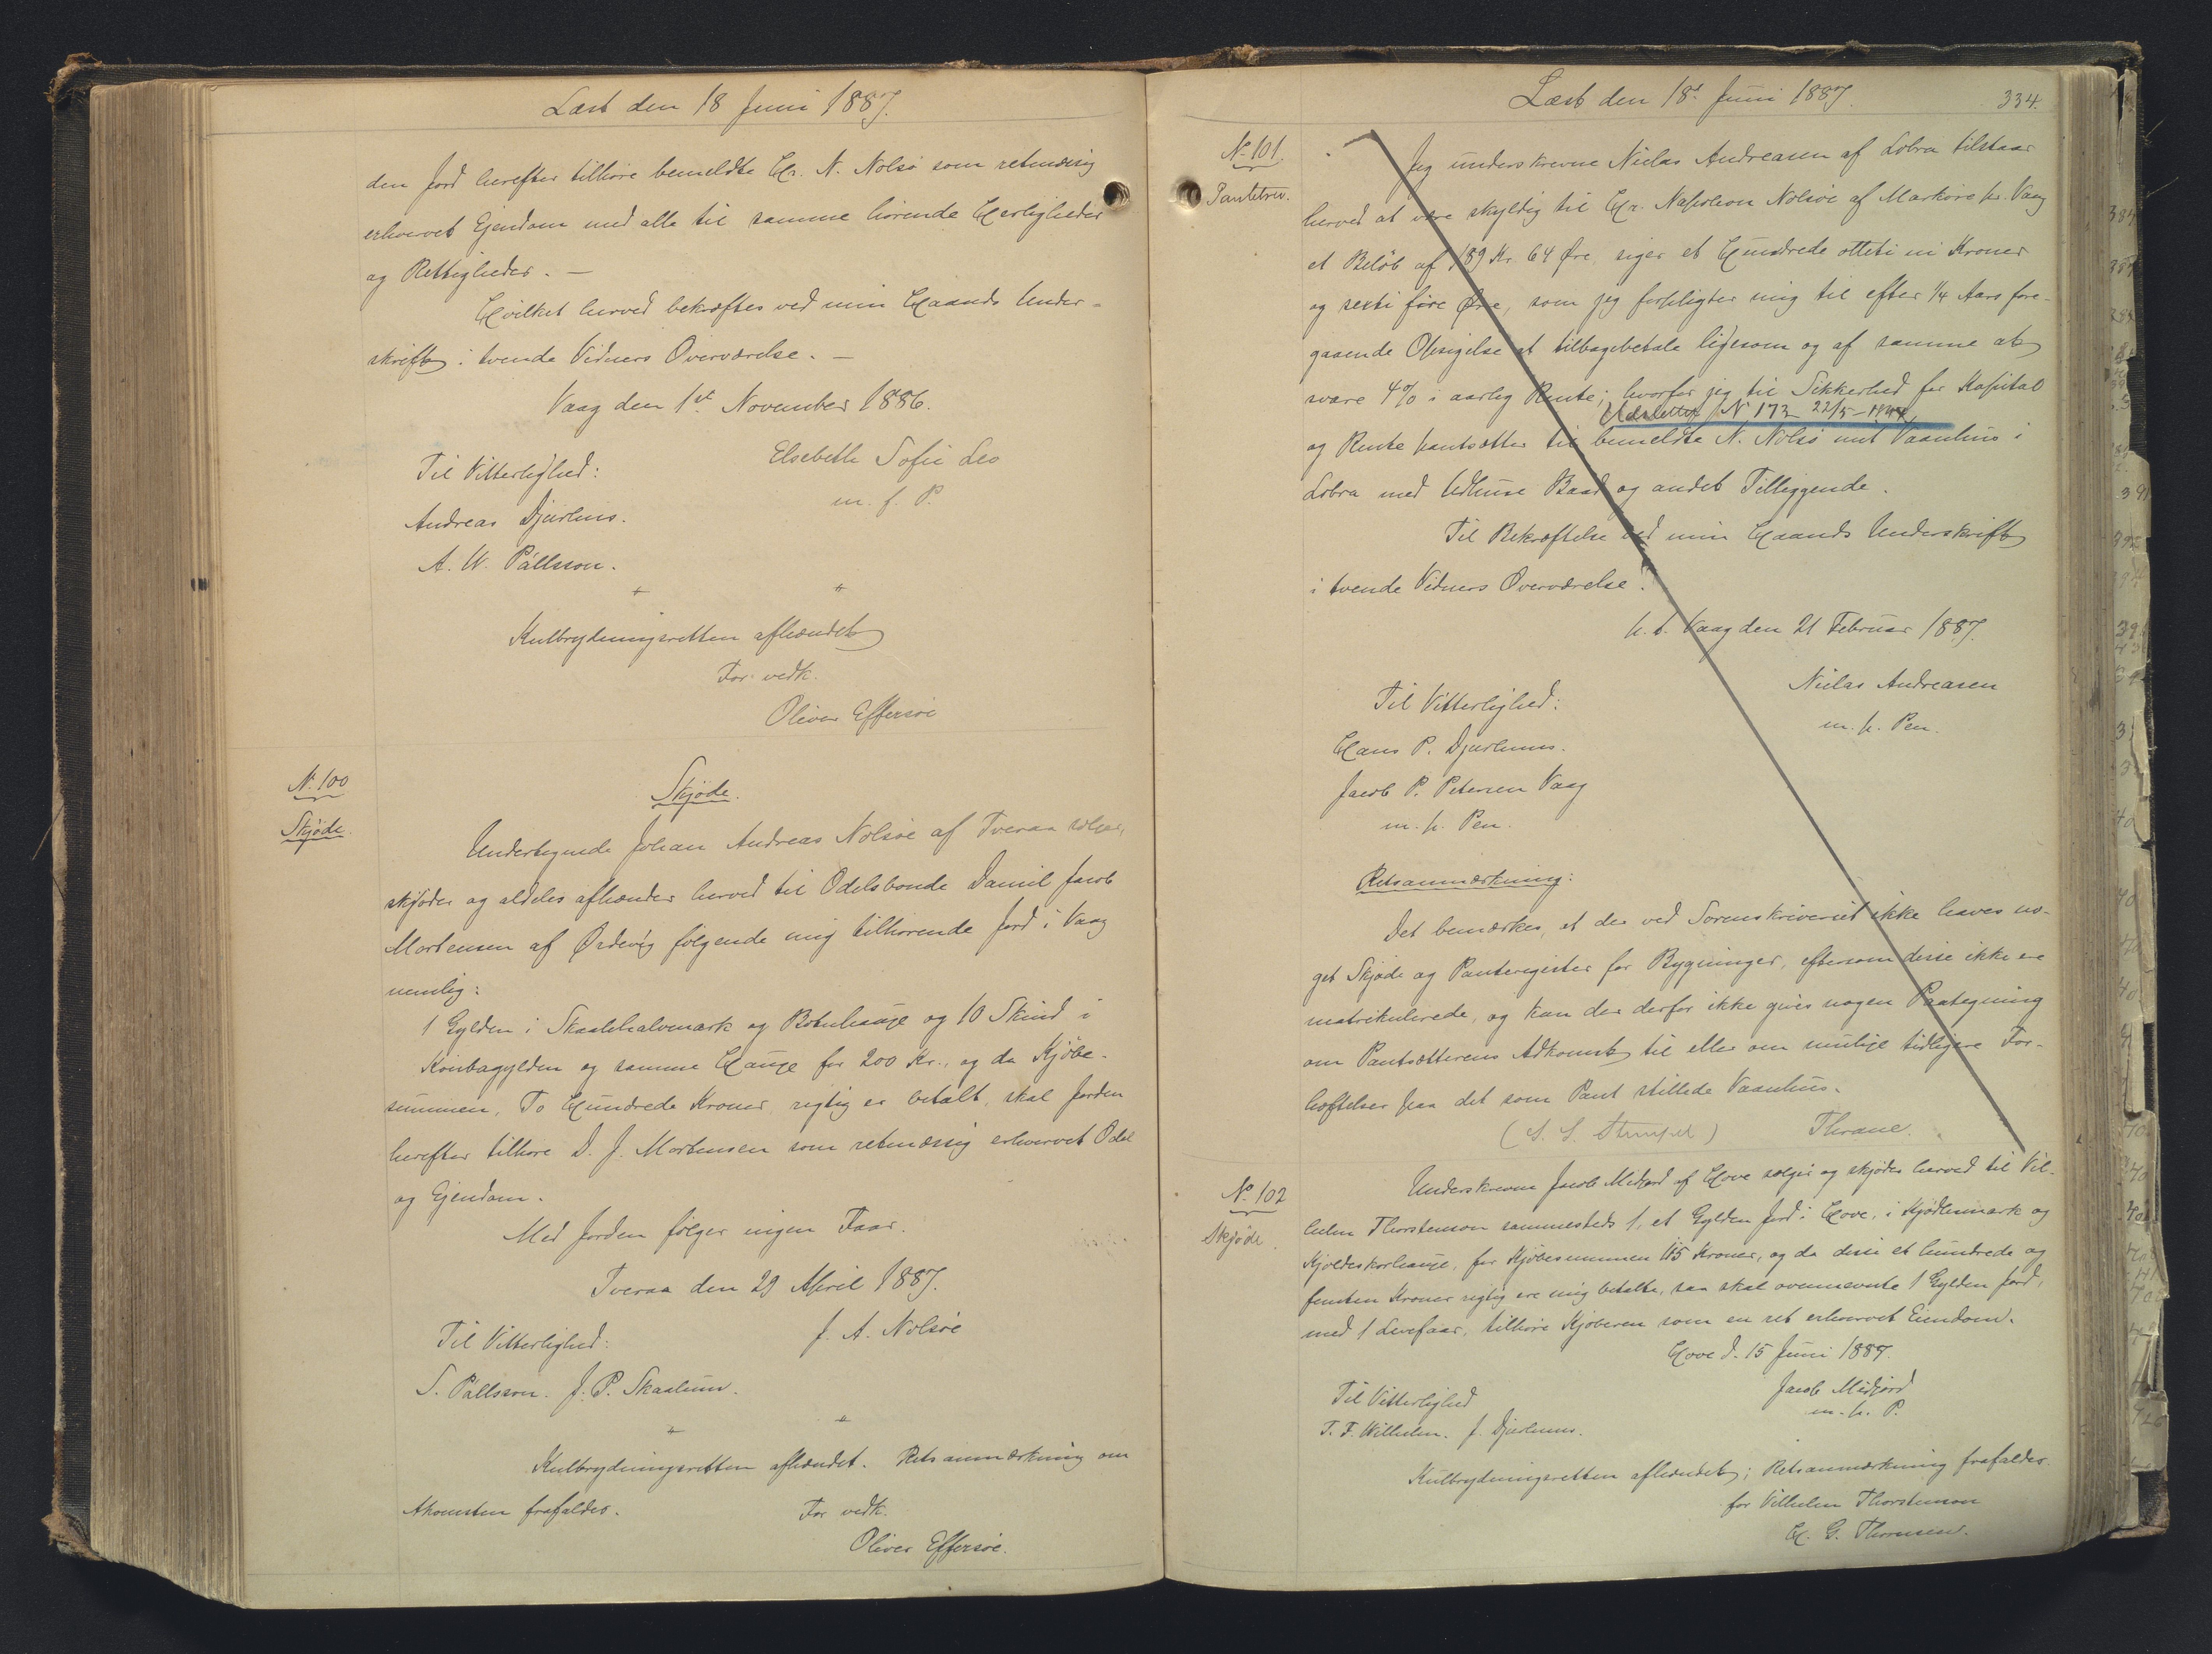 Læst den 18 Juni 1887.
den Jord herefter tilhøre bemeldte Hr. N. Nolsö som retmæsig
erhvervet Ejendom med alle til samme hørende Herligheder
og Rettigheder. —
Hvilket herved bekræftes ved min Haands Under-
skrift i tvende Vidners Overværelse. —
Vaag den 1st November 1886.
Til Vitterlighed:
Elsebeth Sofie
m. f. P.
Andreas Djurhus.
A. W. Pállsson.
Kulbrydningsretten afhændet
For vedk.
Oliver Effersøe
N. 100
Skjøde.
Skjøde.
Undertegnede Johan Andreas Nolsøe af Tveraa sælger,
skjøder og aldeles afhænder herved til Odelsbonde Daniel Jacob
Mortensen af Ørdevig følgende mig tilhørende Jord i Vaag
nemlig:
1 Gylden i Skaalehalvmark og Botnhauge og 10 Skind i
og samme Hauge for 200 Kr., og da Kjøbe-
summen, To Hundrede Kroner rigtig er betalt, skal Jorden
herefter tilhøre D. J. Mortensen som retmæssig erhvervet Odel
og Ejendom.
Med Jorden følger ingen Faar.
Tveraa den 29 April 1887.
Til Vitterlighed:
J. A. Nolsøe
S. Pállsson. J. P. Skaalum.
Kulbrydningsretten afhændet. Retsanmærkning om
Akomsten frafaldes.
For vedk.
Oliver Effersøe.
Læst den 18d Juni 1887.
334.
No 101
Pantebrev.
Jeg underskrevne Nielas Andreasen af Lobra tilstaar
herved at være skyldig til Hr. Napoleon Nolsøe af Markøre pr. Vaag
et Beløb af 189 Kr. 64 Øre siger et Hundrede otteti ni Kroner
og sexti fire Øre, som jeg forpligter mig til efter 1/4 Aars fore-
gaaende Opsigelse at tilbagebetale ligesom og af samme at
svare 4% i aarlig Rente; hvorfor jeg til Sikkerhed for Kapital
Udslettet N 172 22/5 –
og Rente pantsætter til bemeldte N. Nolsö mit Vaanhus i
Lobra med Udhuse Baad og andet Tilliggende.
Til Bekræftelse ved min Haands Underskrift
i tvende Vidners Overværelse.
p. t. Vaag den 21 Februar 1887.
Nielas Andreasen
m. p. Pen.
Til Vitterlighed:
Hans P. Djurhuus.
Jacob P. Petersen Vaag
m. p. Pen.
Retsanmærkning:
Det bemærkes, at der ved Sorenskriveriet ikke haves no-
get Skjøde og Panteregister for Bygninger, eftersom disse ikke ere
matrikulerede, og kan der derfor ikke gives nogen Paategning
om Pantsætterens Adkomst til eller om mulige tidligere For-
hæftelser paa det som Pant stillede Vaanhus.
(L. S. Stempel)
Thrane.
No 102
Skjøde.
Underskrevne Jacob Midjord af Hove sælger og skjøder herved til Vil-
helm Thorstensson sammesteds 1, et Gylden Jord i Hove, i Kjødlumark og
Kjøldeskorhauge, for Kjøbesummen 115 Kroner, og da disse et hundrede og
femten Kroner rigtig ere mig betalte, saa skal ovennævnte 1 Gylden Jord,
med 1 Levefaar, tilhøre Kjøberen som en ret erhvervet Eiendom.
Hove d. 15 Juni 1887.
Jacob Midjord
m. p. P.
Til Vitterlighed
T. F. Wilhelm. J. Djurhuus.
Kulbrydningsretten afhændet; Retsanmærkning frafaldes.
for Vilhelm Thorstensson
H. G. Thomsen.